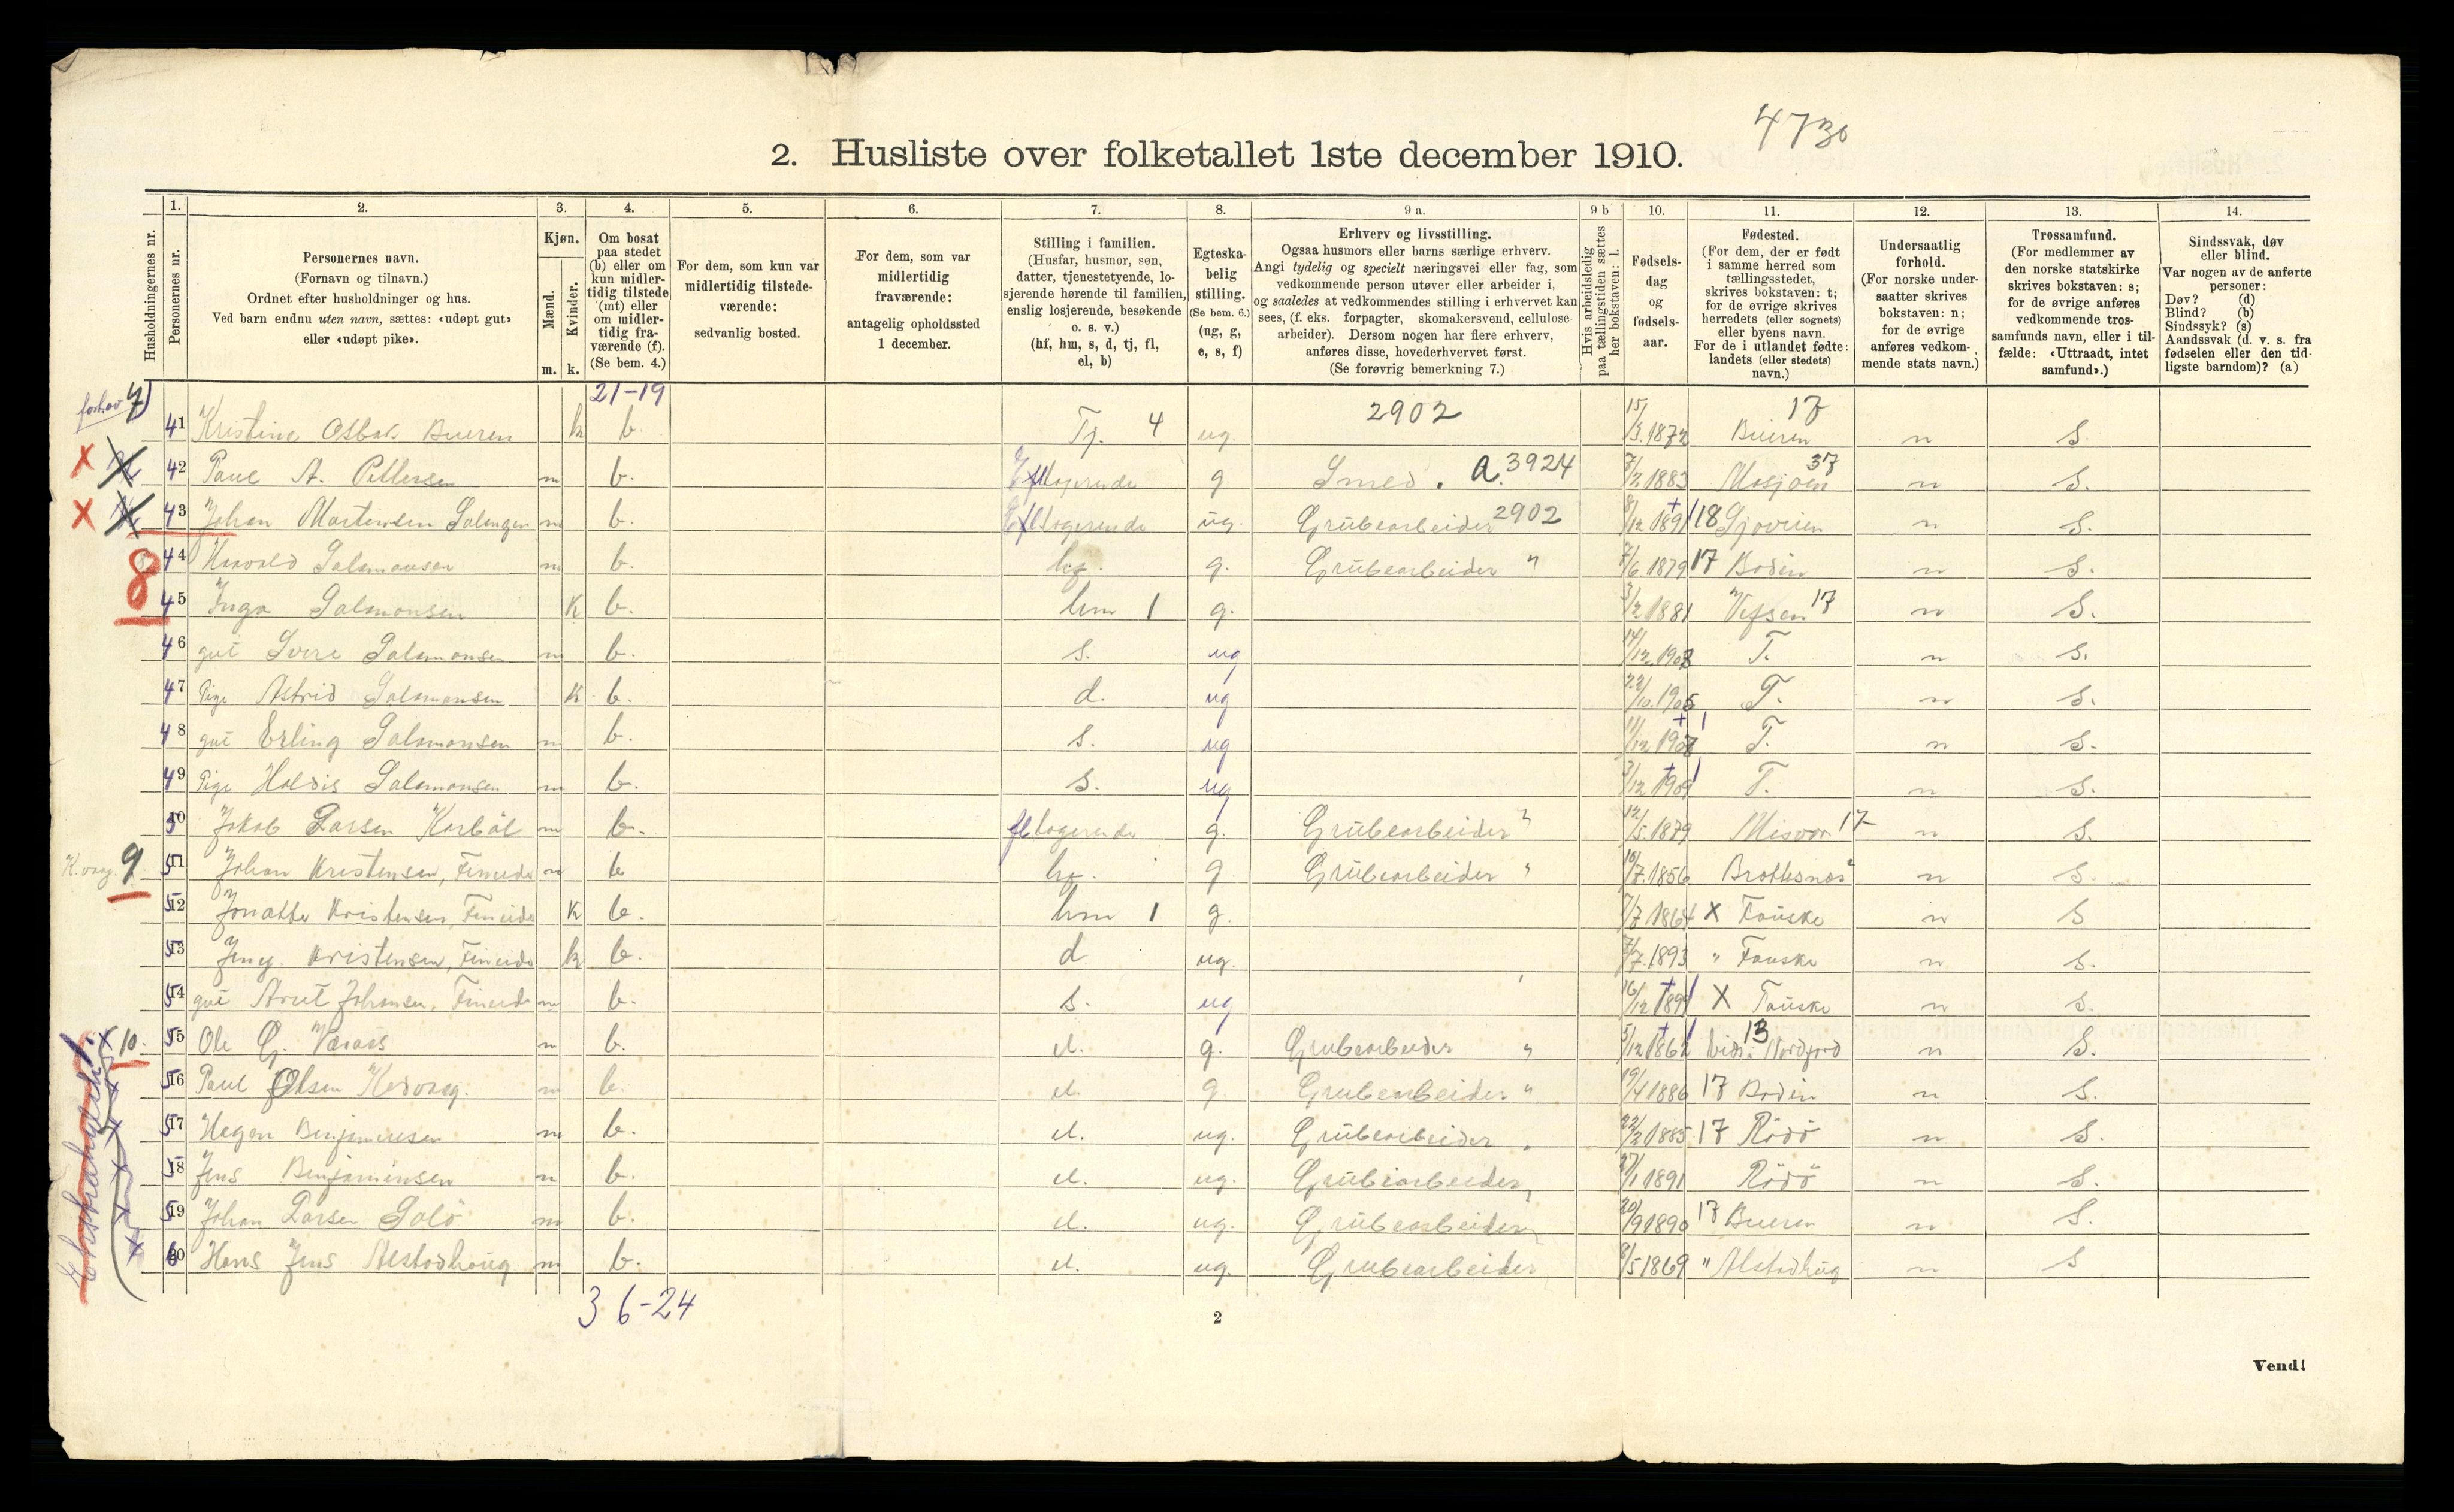 4730
2. Husliste over folketallet 1ste december 1910.
Husholdningernes nr.
1. Personernes nr.
2. Personernes navn. (Fornavn og tilnavn.) Ordnet efter husholdninger og hus. Ved barn endnu uten navn, sættes: «udøpt gut» eller «udøpt pike».
3. Kjøn. Mænd. m. Kvinder. k.
4. Om bosat paa stedet (b) eller om kun midler-tidig tilstede (mt) eller om midler-tidig fra-værende (f). (Se bem. 4.)
5. For dem, som kun var midlertidig tilstede-værende: sedvanlig bosted.
6. For dem, som var midlertidig fraværende: antagelig opholdssted 1 december.
7. Stilling i familien. (Husfar, husmor, søn, datter, tjenestetyende, lo-sjerende hørende til familien, enslig losjerende, besøkende o. s. v.) (hf, hm, s, d, tj, fl, el, b)
8. Egteska-belig stilling. (Se bem. 6.) (ug, g, e, s, f)
9 a. Erhverv og livsstilling. Ogsaa husmors eller barns særlige erhverv. Angi tydelig og specielt næringsvei eller fag, som vedkommende person utøver eller arbeider i, og saaledes at vedkommendes stilling i erhvervet kan sees, (f. eks. forpagter, skomakersvend, cellulose-arbeider). Dersom nogen har flere erhverv, anføres disse, hovederhvervet først. (Se forøvrig bemerkning 7.)
9 b Hvis arbeidsledig paa tællingstiden sættes her bokstaven: l.
10. Fødsels-dag og fødsels-aar.
11. Fødested. (For dem, der er født i samme herred som tællingsstedet, skrives bokstaven: t; for de øvrige skrives herredets (eller sognets) eller byens navn. For de i utlandet fødte: landets (eller stedets) navn.)
12. Undersaatlig forhold. (For norske under-saatter skrives bokstaven: n; for de øvrige anføres vedkom-mende stats navn.)
13. Trossamfund. (For medlemmer av den norske statskirke skrives bokstaven: s; for de øvrige anføres vedkommende tros-samfunds navn, eller i til-fælde: «Uttraadt, intet samfund».)
14. Sindssvak, døv eller blind. Var nogen av de anførte personer: Døv? (d) Blind? (b) Sindssyk? (s) Aandssvak (d. v. s. fra fødselen eller den tid-ligste barndom)? (a)
21-19
7) 41 Kristine k b. Tj. 4 ug. 2902 15/3.1872 17 Bueren n S.
X 42 Paul A. Pettersen m b. logerende g Smed. a. 3924 7/2 1883 Mosjøen 37 n S.
X 43 Johan Martensen m b. logerende ug. Grubearbeider 2902 8/12 1891 18 n S.
8 44 Haavald Salamonsen m b. hf. g. Grubearbeider " 7/6.1879 17 Bodin n S.
45 Inga Salmonsen k b. hm 1 g. 3/2.1881 Vefsen 17 n S.
46 gut Sverre Salamonsen m b. s. ug 14/12.1903 T. n S.
47 Pige Astrid Salamonsen k b. d. ug 22/10.1905 T. n S.
48 gut Erling Salamonsen m b. s. ug 11/12 1907 T. n S.
49 Pige Haldis Salamonsen m b. s. ug 3/12 1909 T. n S.
50 Jakob Larsen Karbøl m b. fl logerende g. Grubearbeider " 12/5.1879 Misvær 17 n S.
9 51 Johan Kristensen, Fineide m b hf. g Grubearbeider " 10/7.1856 Brottesnæs n S.
52 Kristensen, Fineide k b. hm 1 g. 7/7 1864 X Fauske n S
53 Jeny. Kristensen, Fineide k b. d ug. 7/7.1893 " Fauske n S.
54 gut Arnt Johansen, Fineide m b. s. ug 16/12 1899 X Fauske n S.
10. 55 Ole G. m b. el. g. Grubearbeider " 5/12 1862 13 Nordfjord n S.
56 Paul Olsen m b. el. g Grubearbeider " 19/4 1886 17 Bodin n S.
57 Hagen Benjaminsen m b. el. ug. Grubearbeider " 22/2 1885 17 Rödö n S.
58 Jens Benjaminsen m b. el. ug. Grubearbeider " 27/1 1891 Rödö n S.
59 Johan Larsen Solö m b. el. ug. Grubearbeider " 20/9 1890 17 Bueren n S.
60 Hans Jens Alstadhaug m b. el. ug. Grubearbeider 8/5 1869 " Alstadhug n S
36-24
2
Vend!